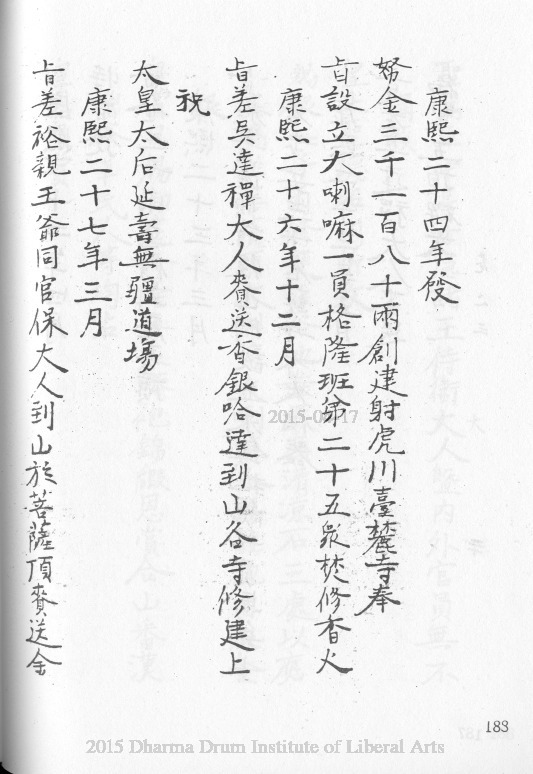 康熙二十四年發
帑金三千一百八十兩創建射虎川臺麓寺奉
旨設立大喇嘛一員格隆班第二十五眾焚修香火
康熙二十六年十二月
旨差吳達禪大人賫送香銀哈達到山各寺修建上
祝
太皇太后延壽無疆道場
康熙二十七年三月
旨差裕親王爺同官保大人到山於菩薩頂賫送金
183
2015-0 -17
2015 Dharma Drum Institute of Liberal Arts